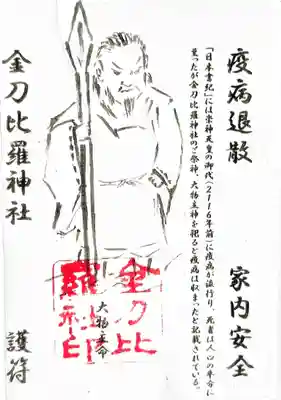 疫病退散
家内安全
「日本書紀」には崇神天皇の御代(2116年前)に疫病が流行り、死者は人心の半方に
至ったが金刀比羅神社のご祭神、大物主神を祀ると疫病は収まったと記載されている。
大物主命
金刀比
羅神
社印
金刀比羅神社
護符